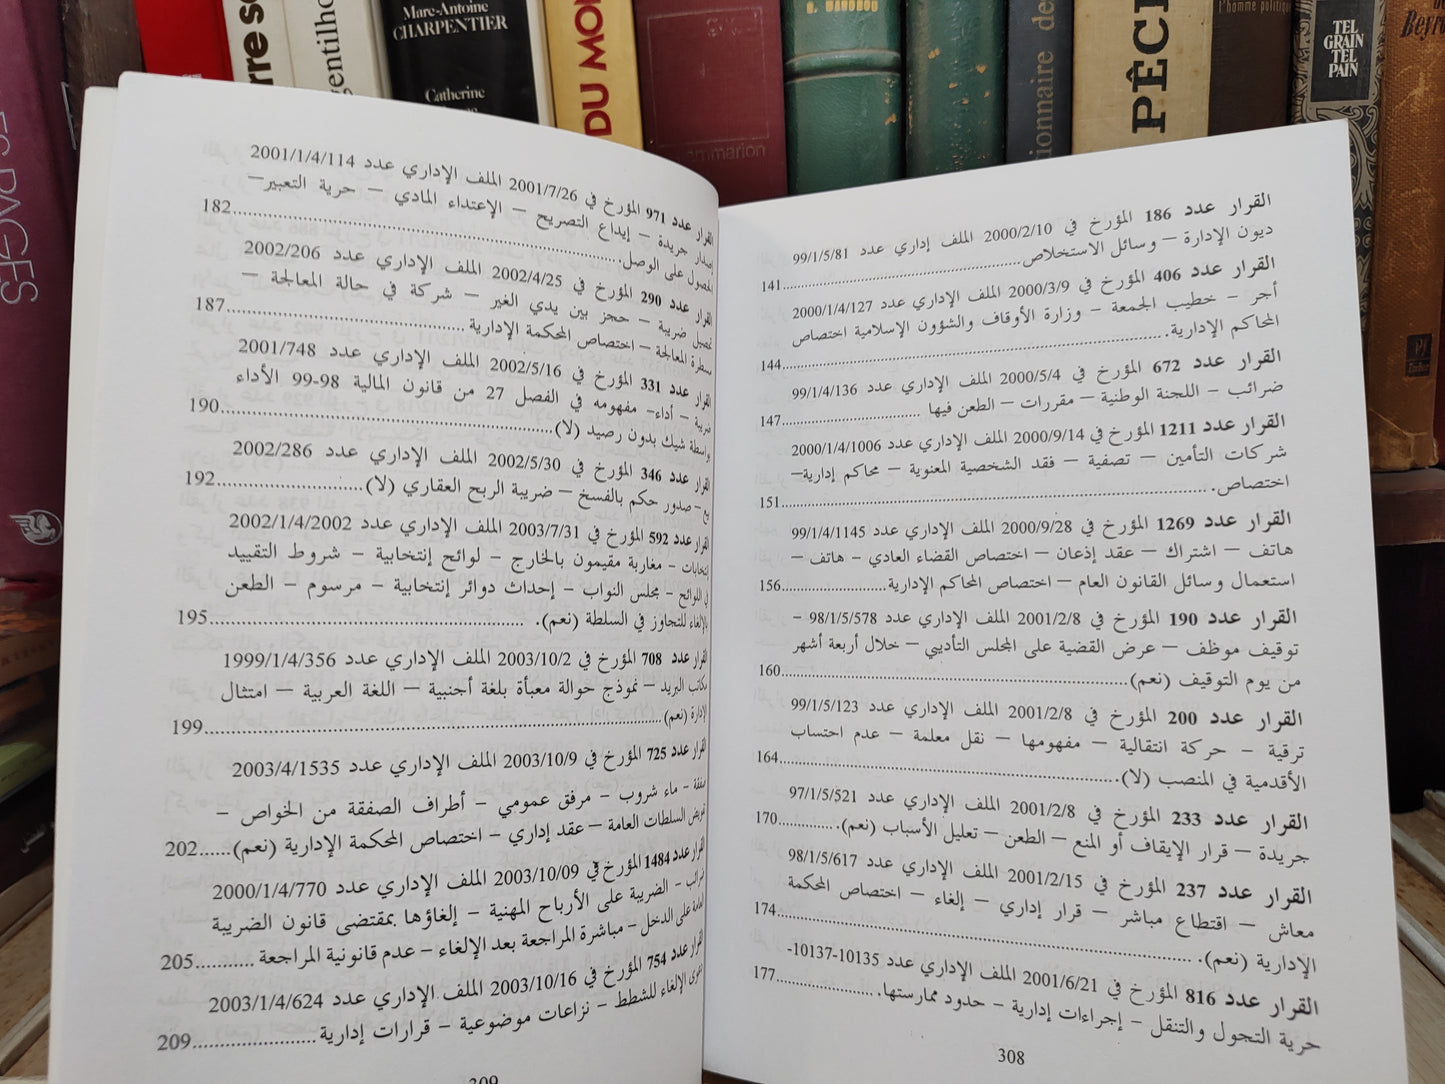 Marc-Antoine
CHARPENTIER
Catherine
gentilho
DU MON
mmarion
ionnaire de
PÊC
l'homme politique
TEL
GRAIN
TEL
PAIN
Beyro
القرار عدد 186 المؤرخ في 2000/2/10 الملف إداري عدد 99/1/5/81
ديون الإدارة – وسائل الاستخلاص......141
القرار عدد 406 المؤرخ في 2000/3/9 الملف الإداري عدد 2000/1/4/127
أجر – خطيب الجمعة – وزارة الأوقاف والشؤون الإسلامية اختصاص
المحاكم الإدارية.......144
القرار عدد 672 المؤرخ في 2000/5/4 الملف الإداري عدد 99/1/4/136
ضرائب – اللجنة الوطنية – مقررات – الطعن فيها ......147
القرار عدد 1211 المؤرخ في 2000/9/14 الملف الإداري عدد 2000/1/4/1006
شركات التأمين – تصفية – فقد الشخصية المعنوية – محاكم إدارية–
اختصاص.......151
القرار عدد 1269 المؤرخ في 2000/9/28 الملف الإداري عدد 99/1/4/1145
هاتف – اشتراك – عقد إذعان – اختصاص القضاء العادي – هاتف –
استعمال وسائل القانون العام – اختصاص المحاكم الإدارية......156
القرار عدد 190 المؤرخ في 2001/2/8 الملف الإداري عدد 98/1/5/578 –
توقيف موظف – عرض القضية على المجلس التأديبي – خلال أربعة أشهر
من يوم التوقيف (نعم)......160
القرار عدد 200 المؤرخ في 2001/2/8 الملف الإداري عدد 99/1/5/123
ترقية – حركة انتقالية – مفهومها – نقل معلمة – عدم احتساب
الأقدمية في المنصب (لا).......164
القرار عدد 233 المؤرخ في 2001/2/8 الملف الإداري عدد 97/1/5/521
جريدة – قرار الإيقاف أو المنع – الطعن – تعليل الأسباب (نعم).......170
القرار عدد 237 المؤرخ في 2001/2/15 الملف الإداري عدد 98/1/5/617
معاش – اقتطاع مباشر – قرار إداري – إلغاء – اختصاص المحكمة
الإدارية (نعم).......174
القرار عدد 816 المؤرخ في 2001/6/21 الملف الإداري عدد 10135-10137-
حرية التحول والتنقل – إجراءات إدارية – حدود ممارستها.......177
308
القرار عدد 971 المؤرخ في 2001/7/26 الملف الإداري عدد 2001/1/4/114
إصدار جريدة – إيداع التصريح – الإعتداء المادي – حرية التعبير–
الحصول على الوصل.......182
القرار عدد 290 المؤرخ في 2002/4/25 الملف الإداري عدد 2002/206
تحصيل ضريبة – حجز بين يدي الغير – شركة في حالة المعالجة –
مسطرة المعالجة – اختصاص المحكمة الإدارية ......187
القرار عدد 331 المؤرخ في 2002/5/16 الملف الإداري عدد 2001/748
ضريبة – أداء– مفهومه في الفصل 27 من قانون المالية 98-99 الأداء
بواسطة شيك بدون رصيد (لا)......190
القرار عدد 346 المؤرخ في 2002/5/30 الملف الإداري عدد 2002/286
بيع – صدور حكم بالفسخ – ضريبة الربح العقاري (لا)......192
القرار عدد 592 المؤرخ في 2003/7/31 الملف الإداري عدد 2002/1/4/2002
إنتخابات – مغاربة مقيمون بالخارج – لوائح إنتخابية – شروط التقييد
في اللوائح – مجلس النواب – إحداث دوائر إنتخابية – مرسوم – الطعن
بالإلغاء للتجاوز في السلطة (نعم). ......195
القرار عدد 708 المؤرخ في 2003/10/2 الملف الإداري عدد 1999/1/4/356
مكاتب البريد – نموذج حوالة معبأة بلغة أجنبية – اللغة العربية – امتثال
الإدارة (نعم)......199
القرار عدد 725 المؤرخ في 2003/10/9 الملف الإداري عدد 2003/4/1535
صفقة – ماء شروب – مرفق عمومي – أطراف الصفقة من الخواص –
تفويض السلطات العامة – عقد إداري – اختصاص المحكمة الإدارية (نعم)......202
القرار عدد 1484 المؤرخ في 2003/10/09 الملف الإداري عدد 2000/1/4/770
ضرائب – الضريبة على الأرباح المهنية – إلغاؤها بمقتضى قانون الضريبة
العامة على الدخل – مباشرة المراجعة بعد الإلغاء – عدم قانونية المراجعة ......205
القرار عدد 754 المؤرخ في 2003/10/16 الملف الإداري عدد 2003/1/4/624
دعوى الإلغاء للشطط – نزاعات موضوعية – قرارات إدارية ......209
309